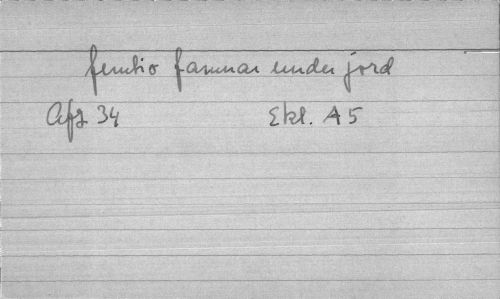 femtio famnar under jord
Afz 34 Ekl. A5